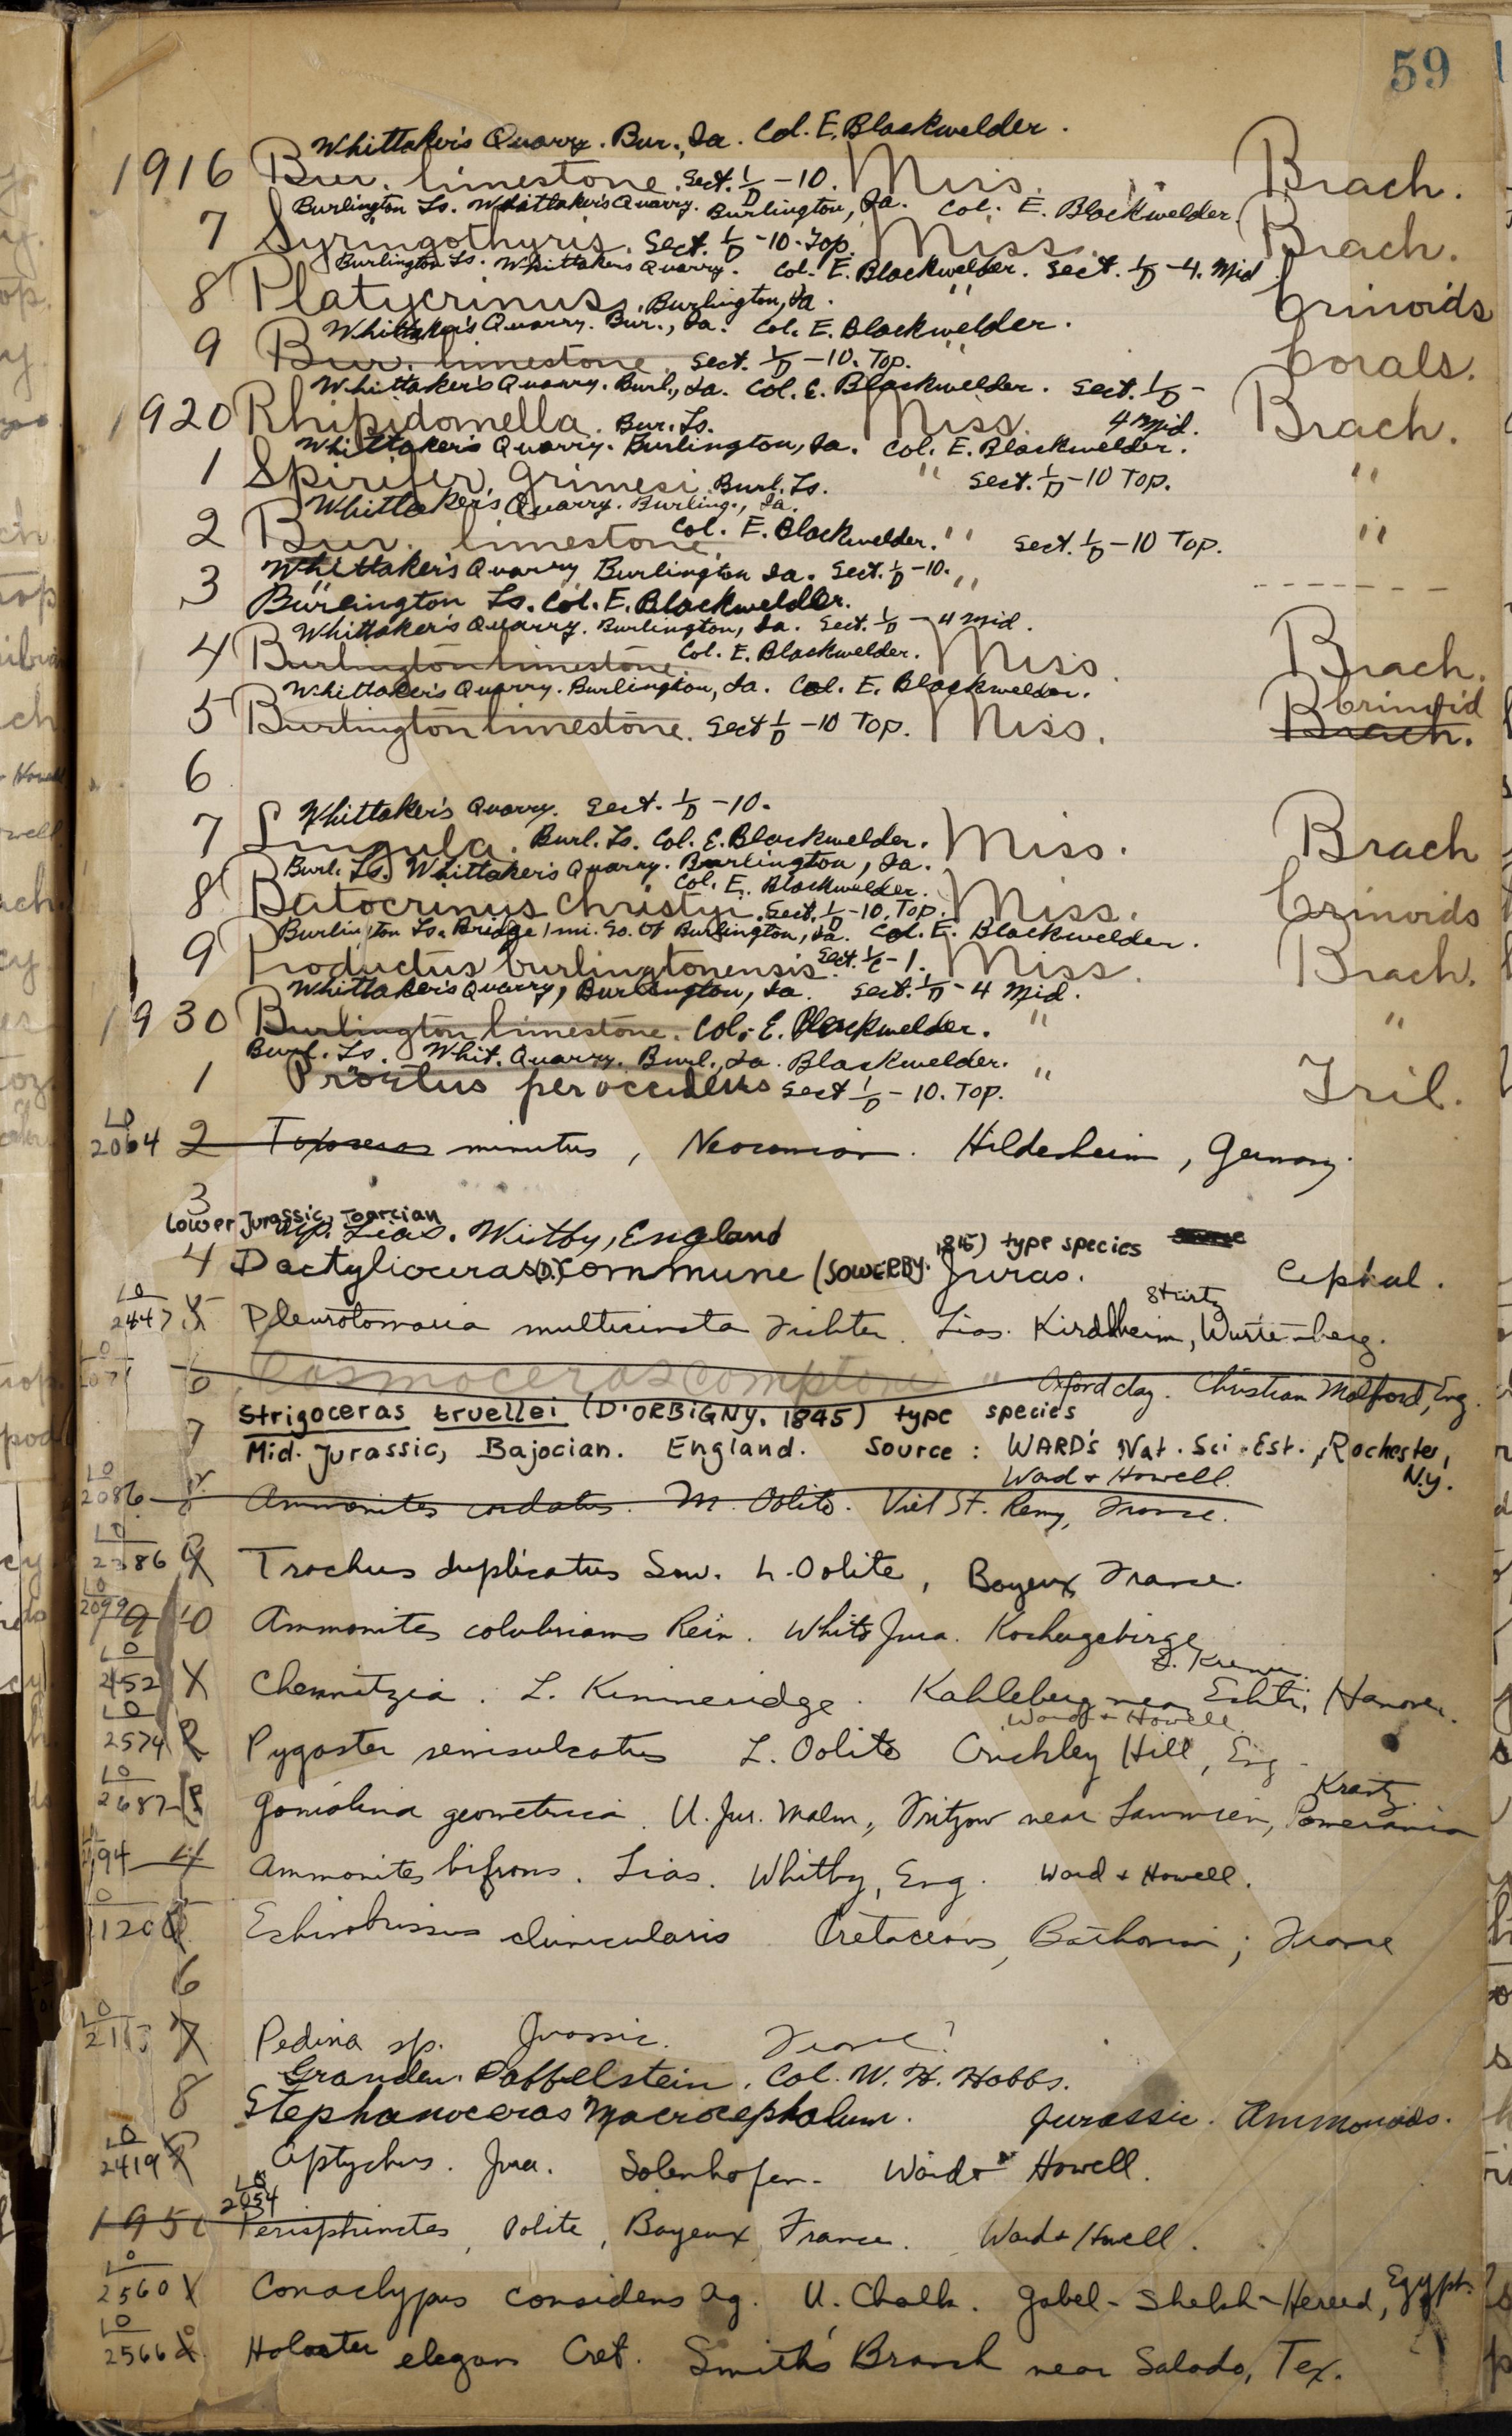 59
Whittaker's Quarry. Bur., Ia. Col. E. Blackwelder.
1916 Bur. limestone. Sect. 1/D -10. Miss. Brach.
Burlington Ls. Whittaker's Quarry. Burlington, Ia. Col. E. Blackwelder.
7 Syringothyris. Sect. 1/D -10. Top Miss. Brach.
Burlington Ls. Whittakers Quarry. Col. E. Blackwelder. Sect. 1/D -4. Mid
8 Platycrinus. Burlington, Ia. " Crinoids
Whittaker's Quarry. Bur., Ia. Col. E. Blackwelder.
9 Bur. limestone. Sect. 1/D -10. Top. " Corals.
Whittaker's Quarry. Burl., Ia. Col. E. Blackwelder. Sect. 1/D -
1920 Rhipidomella. Bur. Ls. Miss. 4 Mid. Brach.
Whittaker's Quarry. Burlington, Ia. Col. E. Blackwelder.
1 Spirifer grimesi. Burl. Ls. " Sect. 1/D -10 Top. "
Whittaker's Quarry. Burling., Ia.
2 Bur. limestone. Col. E. Blackwelder. " Sect. 1/D -10 Top. "
Whittaker's Quarry Burlington Ia. Sect. 1/D -10. "
3 Burlington Ls. Col. E. Blackwelder.
Whittaker's Quarry. Burlington, Ia. Sect. 1/D - 4 Mid.
4 Burlington limestone. Col. E. Blackwelder. Miss. Brach.
Whittaker's Quarry. Burlington, Ia. Col. E. Blackwelder. Crinoid
5 Burlington limestone. Sect 1/D -10 Top. Miss. Brach.
6
Whittaker's Quarry. Sect. 1/D -10.
7 Lingula. Burl. Ls. Col. E. Blackwelder. Miss. Brach
Burl. Ls. Whittaker's Quarry. Burlington, Ia.
Col. E. Blackwelder.
8 Batocrinus christyi. Sect. 1/D -10. Top. Miss. Crinoids
Burlington Ls. Bridge 1 mi. So. of Burlington, Ia. Col. E. Blackwelder.
9 Productus burlingtonensis Sect. 1/C -1. Miss. Brach.
Whittaker's Quarry, Burlington, Ia. Sect. 1/D - 4 Mid.
1930 Burlington limestone. Col. E. Blackwelder. " "
Burl. Ls. Whit. Quarry. Burl., Ia. Blackwelder.
1 Proetus peroccidens Sect 1/D - 10. Top. " Tril.
LO
2064 2 Toxoceras minutus, Neocomian. Hildesheim, Germany.
3
Lower Jurassic, Toarcian
Up. Lias. Witby, England
4 Dactylioceras (D.) commune (SOWERBY. 1815) type species Juras. Cephal.
LO
2447 5 Pleurotomaria multicincta Lias. Kirchheim, Wurtemberg. Sturtz
6 Cosmoceras Oxford clay. Christian Malford, Eng.
Strigoceras truellei (D'ORBIGNY, 1845) type species
7 Mid. Jurassic, Bajocian. England. Source: WARD'S Nat. Sci. Est., Rochester, N.Y.
LO Ward + Howell.
2086 8 Ammonites cordatus. M. Oolite. Viel St. Remy, France.
LO
2386 9 Trochus duplicatus Sow. L. Oolite, Bayeux France.
LO
2099 1940 Ammonites colubrinus Rein. White Jura. Kochergebirge
LO
2452 Chemnitzia. L. Kimmeridge. Kahleberg near Echte, Hanover.
LO Ward + Howell.
2574 2 Pygaster semisulcatus L. Oolite Crickley Hill, Eng.
LO Krantz
2687 Goniolina geometrica. U. Jur. Malm, Fritzow near Cammin, Pomerania
94 4 Ammonites bifrons. Lias. Whitby, Eng. Ward + Howell.
Echinobrissus clunicularis Cretaceous, Bathonian; France
6
LO
7 Pedina sp. Jurassic. France?
Col. W. H. Hobbs.
8 Stephanoceras Macrocephalum. Jurassic. Ammonoids.
LO
2419 9 Aptychus. Jura. Solenhofen. Ward + Howell.
LO
2054
1950 Perisphinctes, Oolite, Bayeux France. Ward + Howell.
LO
2560 Conoclypus considens Ag. U. Chalk. Egypt.
LO
2566 Holaster elegans Cret. Smith's Branch near Salado, Tex.